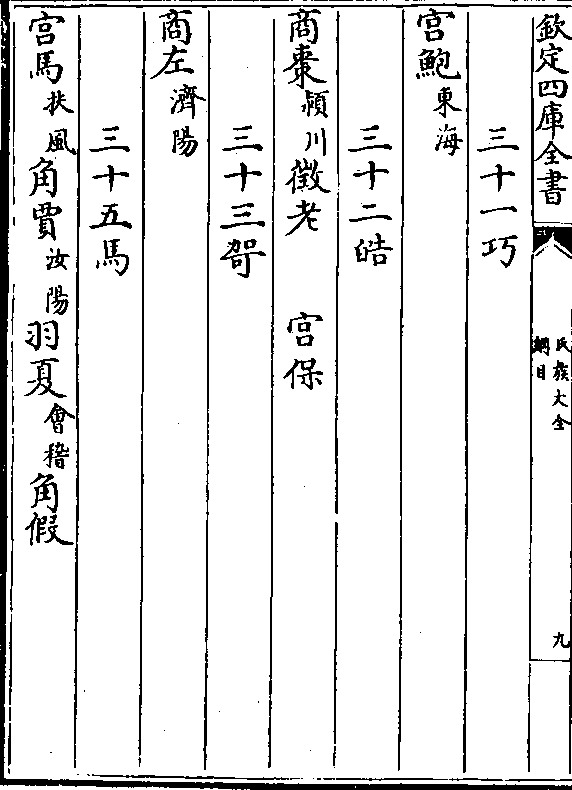 欽定四庫全書
氏族大全
綱目
九
三十一巧
宮鮑東海
三十二皓
商棗潁川徵老 宮保
三十三哿
商左濟陽
三十五馬
宮馬扶風角賈汝陽羽夏會稽角假